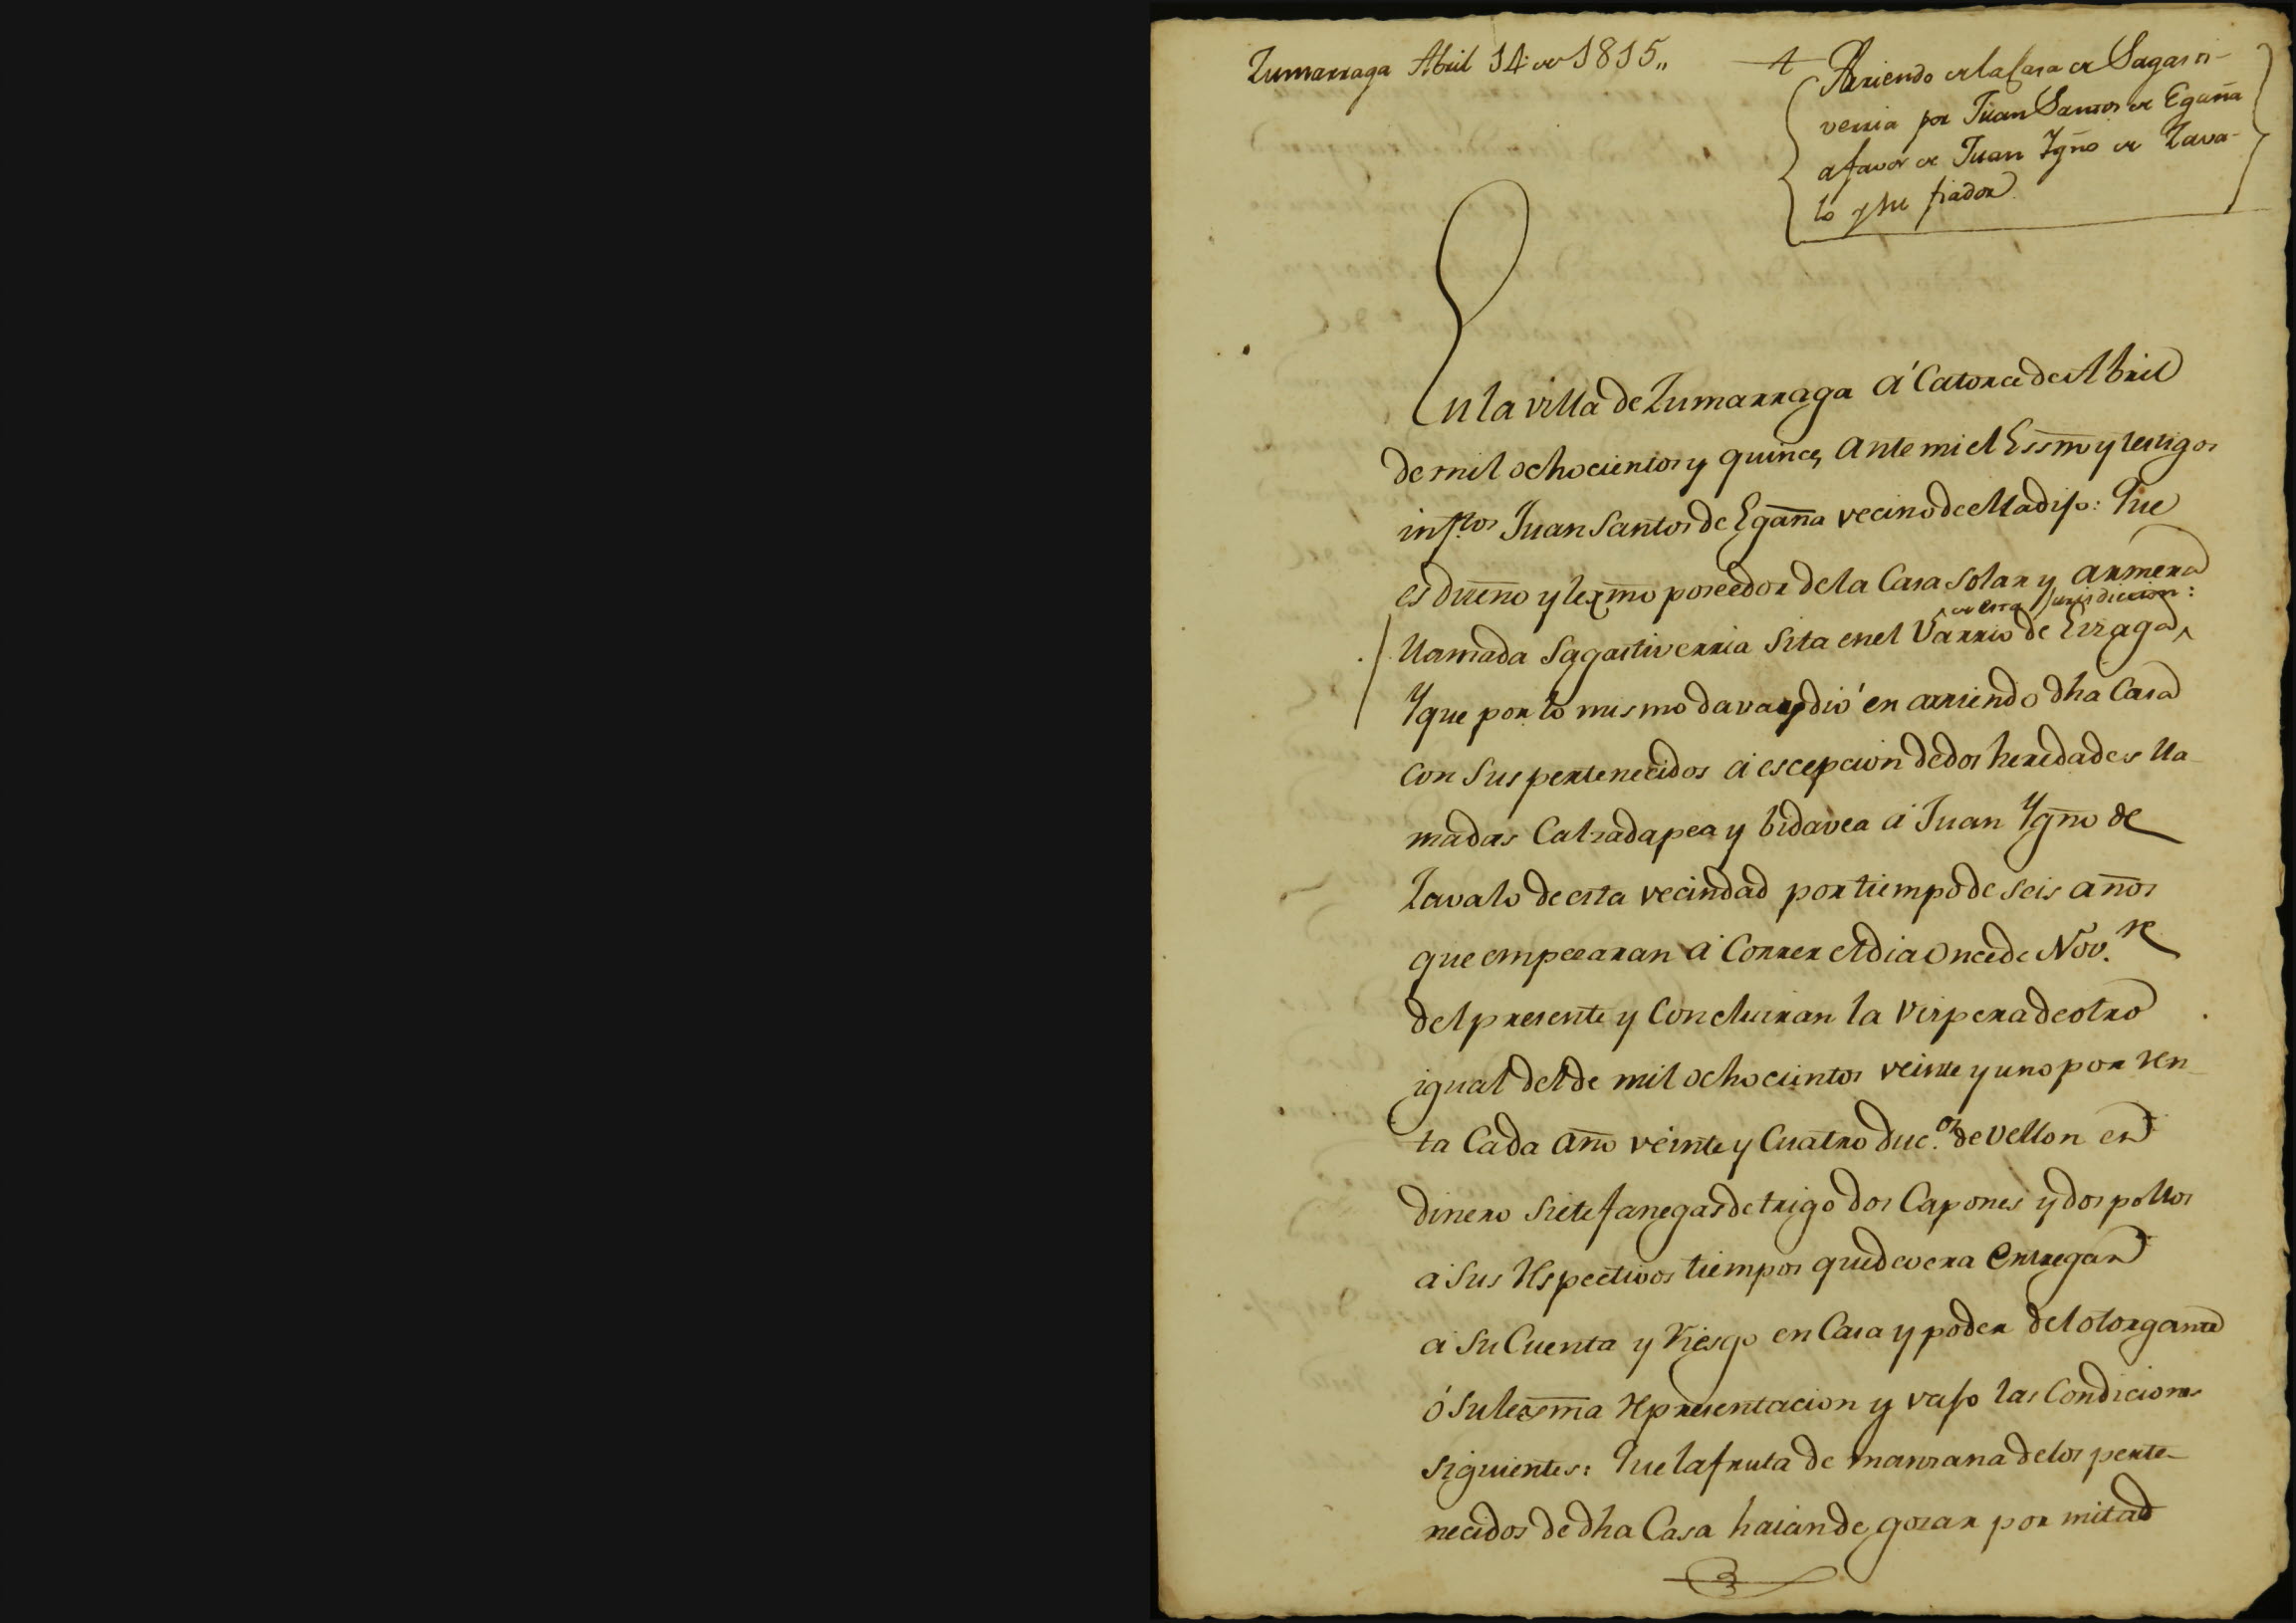 Zumarraga Abril 14 de 1815,,
Arriendo de la Casa de Sagasti-
verria por Juan Santos de Egaña
a favor de Juan Ygño de Zava-
lo y su fiador
En la villa de Zumarraga á Catorce de Abril
de mil ochocientos y quince, ante mi el Essmo y testigos
infros Juan Santos de Egaña vecino de ella dijo: Que
es dueño y lexmo poseedor de la Casa solar y armera
de esta Jurisdiccion:
llamada Sagastiverria sita en el Varrio de Eizaga
Y que por lo mismo dava y dió en arriendo dha Casa
con sus pertenecidos á escepcion de dos heredades lla-
madas Calzadapea y bidavea á Juan Ygño de
Zavalo de esta vecindad por tiempo de seis años
que empezaran á Correr el dia Once de Nov.re
del presente y Concluiran la Vispera de otro
igual del de mil ochocientos veinte y uno por ren-
ta Cada año veinte y Cuatro duc.os de Vellon en
dinero siete fanegas de trigo dos Capones y dos pollos
a sus respectivos tiempos que devera entregar
a su Cuenta y Riesgo en Casa y poder del otorgante
ó su lexma representacion y vajo las Condiciones
siguientes: Que la fruta de manzana de los perte-
necidos de dha Casa haian de gozar por mitad